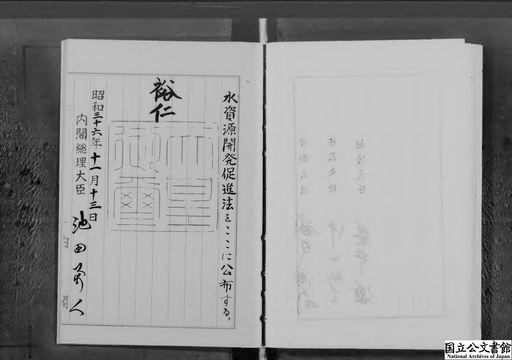 水資源開発促進法をここに公布する。
裕仁
天皇御璽
昭和三十六年十一月十三日
内閣総理大臣 池田勇人
国立公文書館
National Archives of Japan